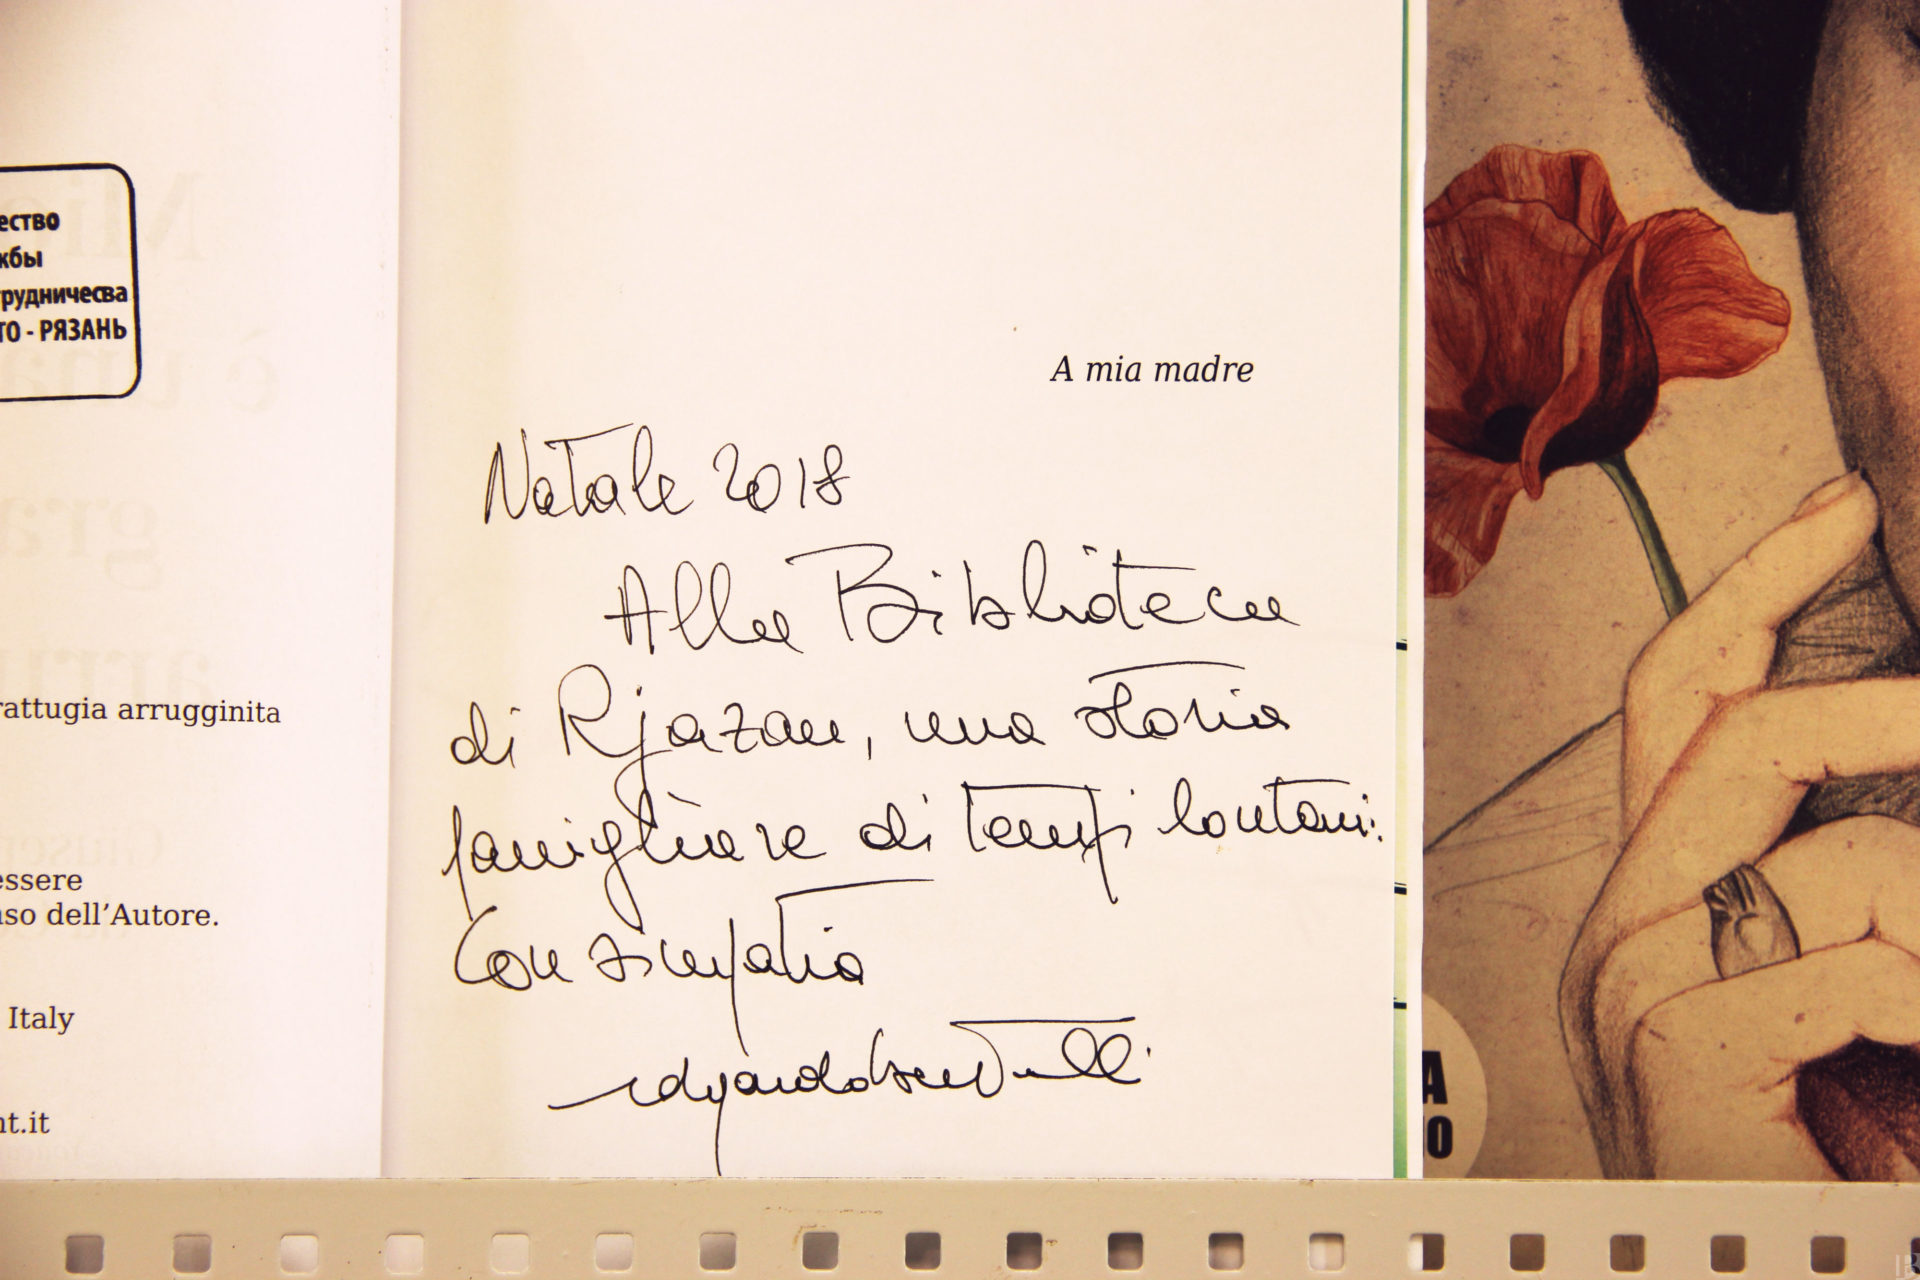 ество
жбы
трудничесва
ТО - РЯЗАНЬ
rattugia arrugginita
essere
nso dell'Autore.
Italy
nt.it
A mia madre
Natale 2018
Alla Biblioteca
di Rjazan, una storia
famigliare di tempi lontani.
Con simpatia